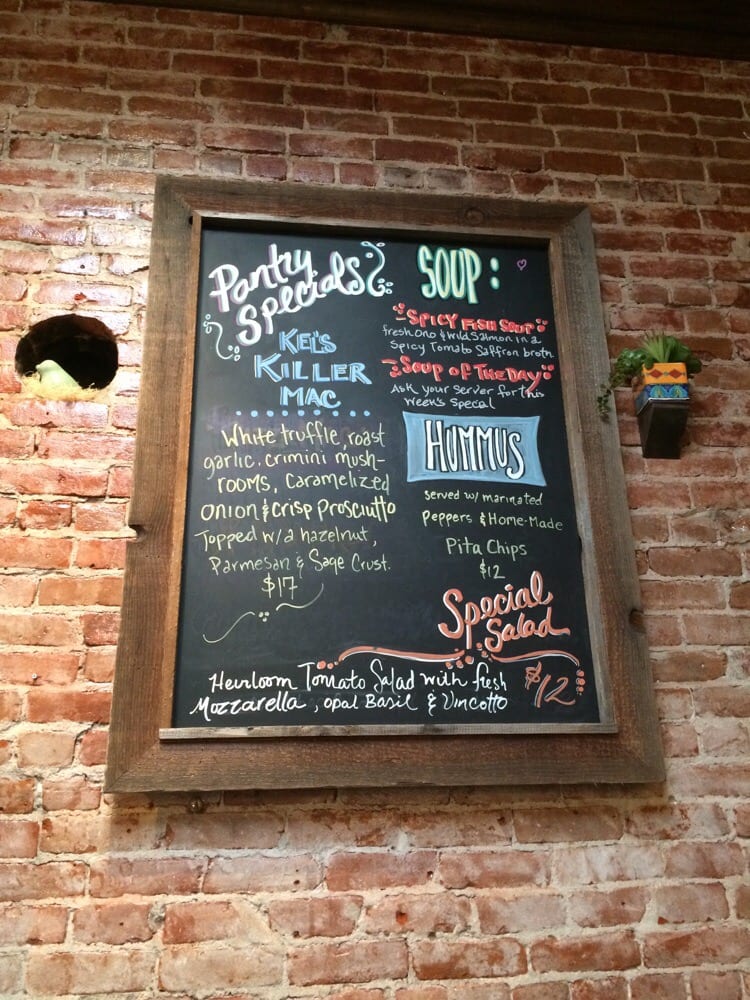 Pantry
Specials
KEL'S
KILLER
MAC
White truffle, roast
garlic, crimini mush-
rooms, Caramelized
onion & crisp Prosciutto
Topped w/ a hazelnut,
Parmesan & Sage Crust.
$17
SOUP:
SPICY FISH SOUP
fresh Ono & Wild Salmon in a
Spicy Tomato Saffron broth
SOUP OF THE DAY
Ask your server for this
week's special
HUMMUS
served w/ marinated
Peppers & Home-Made
Pita Chips
$12
Special
Salad
Heirloom Tomato Salad with fresh
Mozzarella, opal Basil & Vincotto
$12